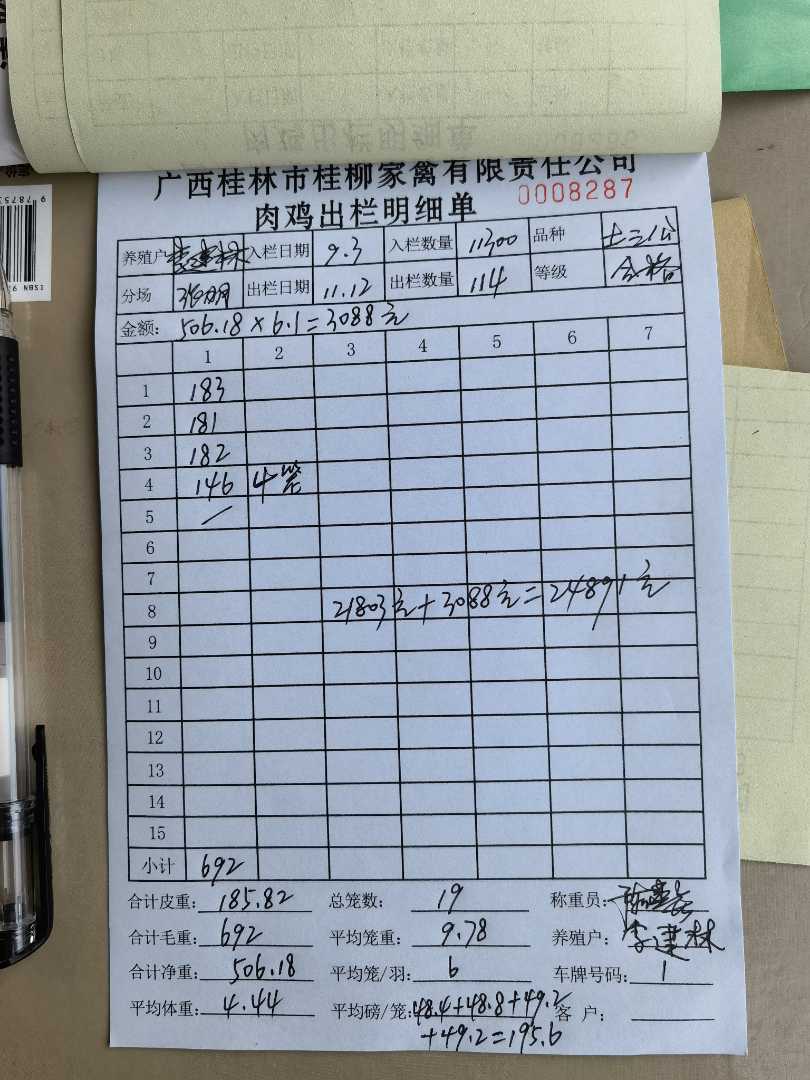 广西桂林市桂柳家禽有限责任公司
肉鸡出栏明细单 0008287
养殖户 李建林 入栏日期 9.3 入栏数量 11300 品种 土二公
分场 出栏日期 11.12 出栏数量 114 等级 合格
金额: 506.18×6.1=3088元
1 2 3 4 5 6 7
1 183
2 181
3 182
4 146 4笼
5 /
6
7
8 21803元+3088元=24891元
9
10
11
12
13
14
15
小计 692
合计皮重: 185.82 总笼数: 19 称重员:
合计毛重: 692 平均笼重: 9.78 养殖户: 李建林
合计净重: 506.18 平均笼/羽: 6 车牌号码: 1
平均体重: 4.44 平均磅/笼: 48.4+48.8+49.2 客户:
+49.2=195.6
ISBN